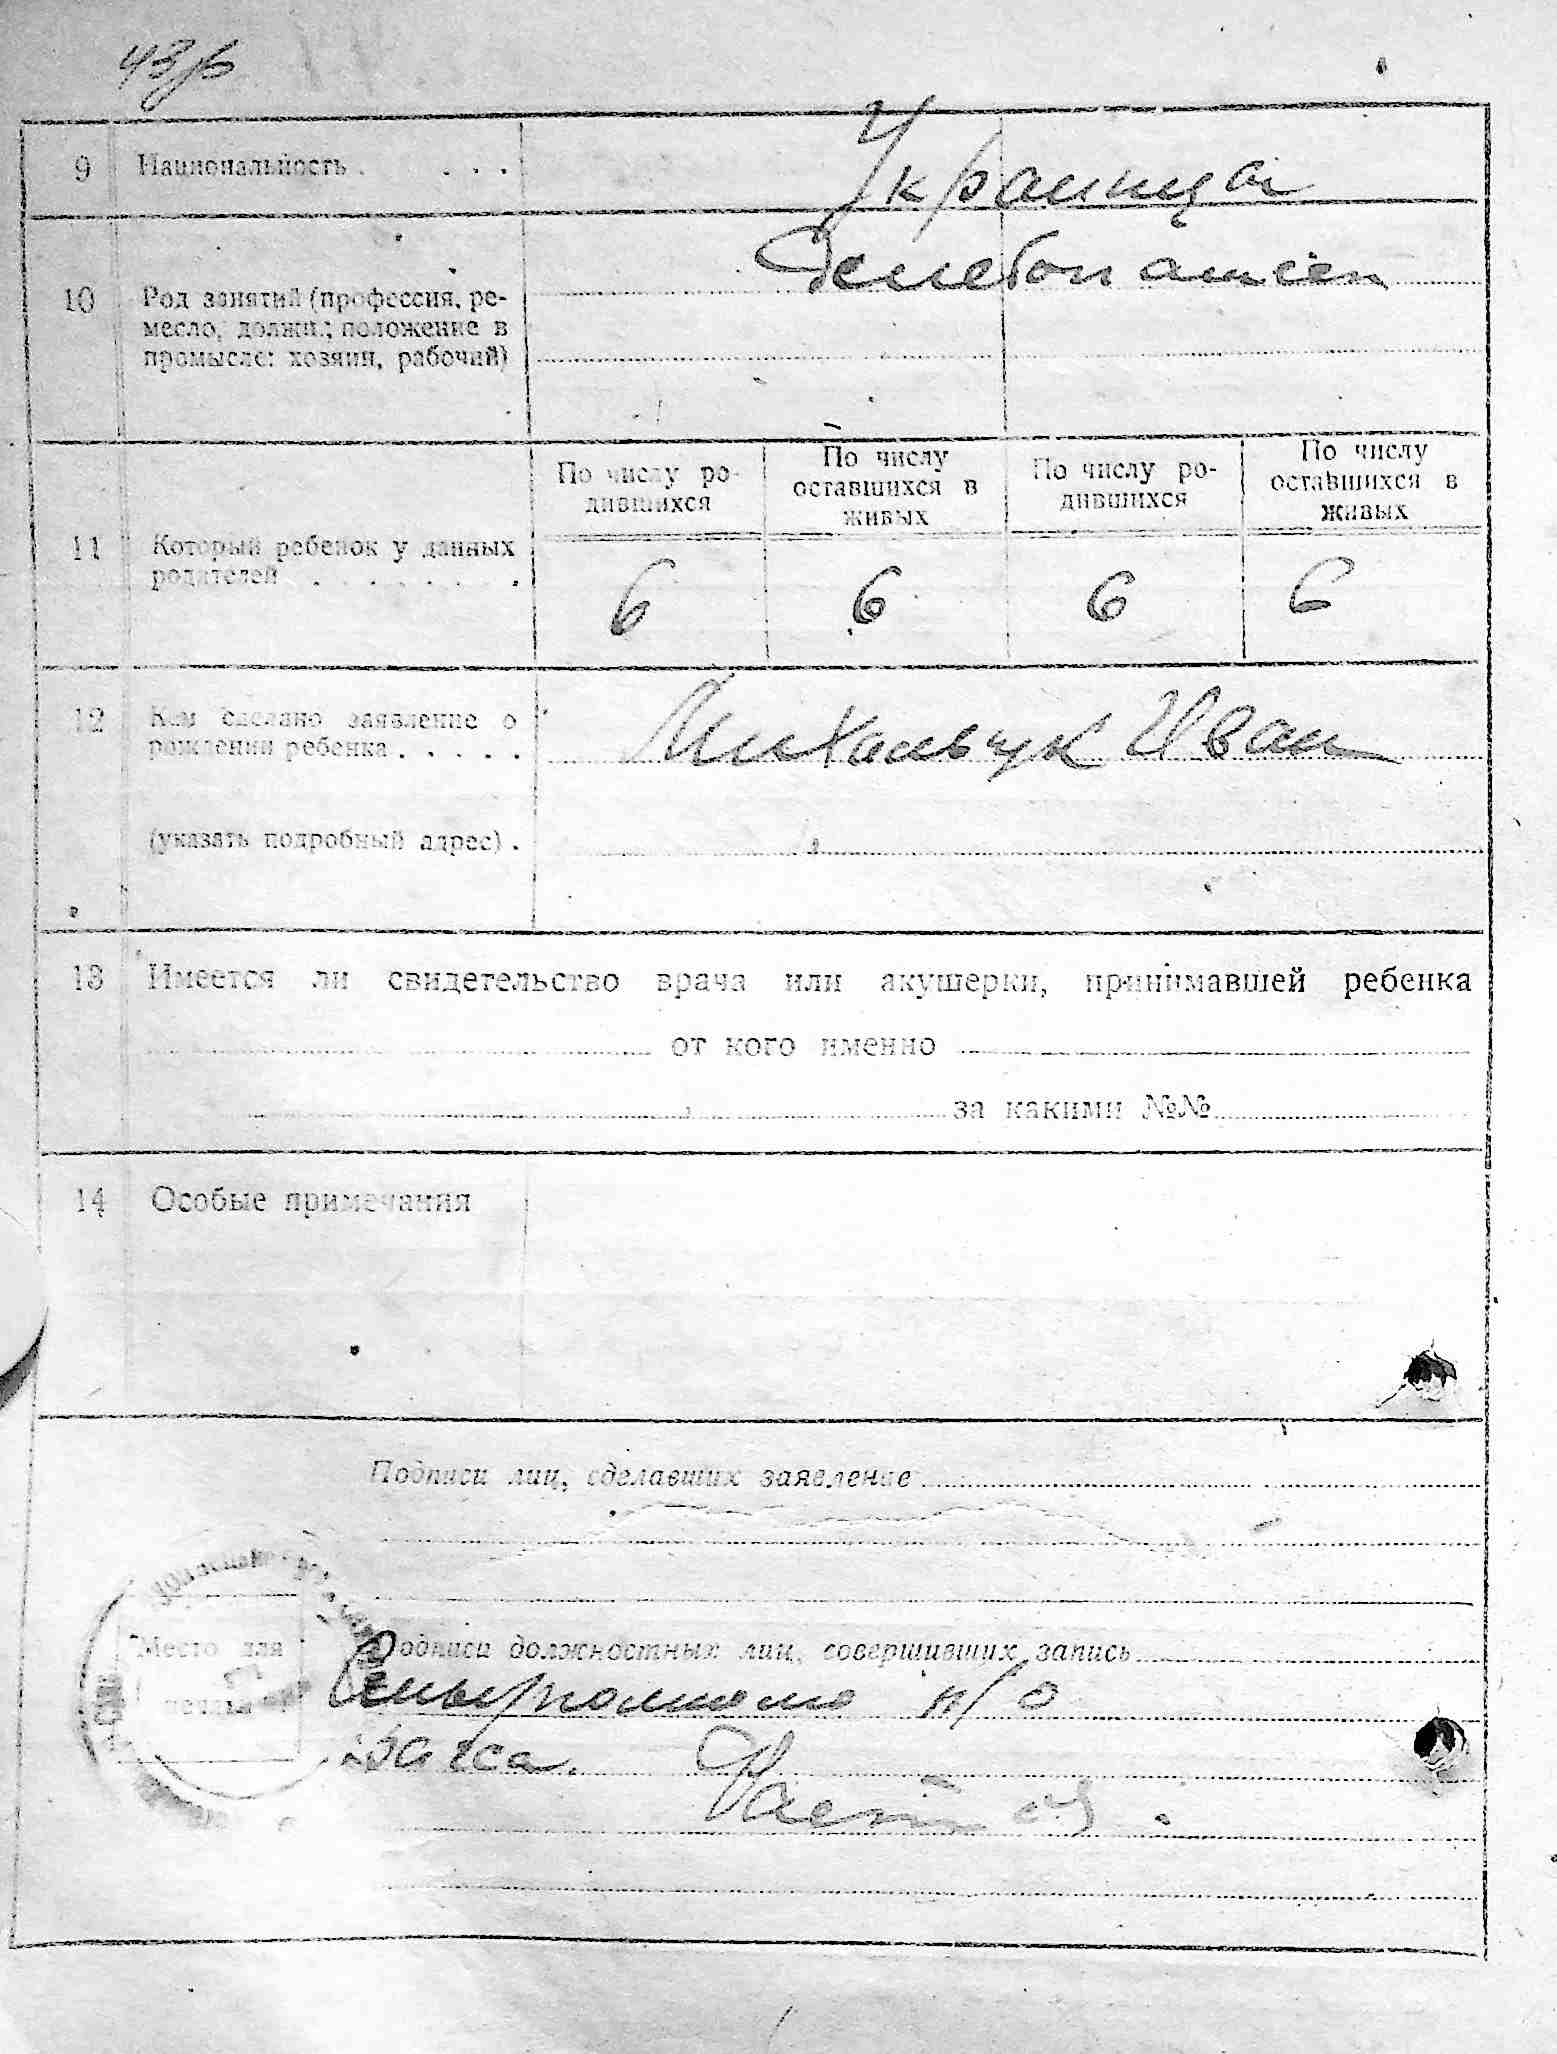 9 Национальность . . . . Украинцы
10 Род занятий (профессия, ре-
месло, должн.; положение в
промысле: хозяин, рабочий)
По числу ро-
дившихся
По числу
оставшихся в
живых
По числу ро-
дившихся
По числу
оставшихся в
живых
11 Который ребенок у данных
родителей . . . . . . .
6 6 6 6
12 Кем сделано заявление о
рождении ребенка . . . . .
Михальчук Иван
(указать подробный адрес) .
13 Имеется ли свидетельство врача или акушерки, принимавшей ребенка
от кого именно
за какими №№
14 Особые примечания
Подписи лиц, сделавших заявление
Место для
печати
Подписи должностных лиц, совершивших запись
п/о
Загса.